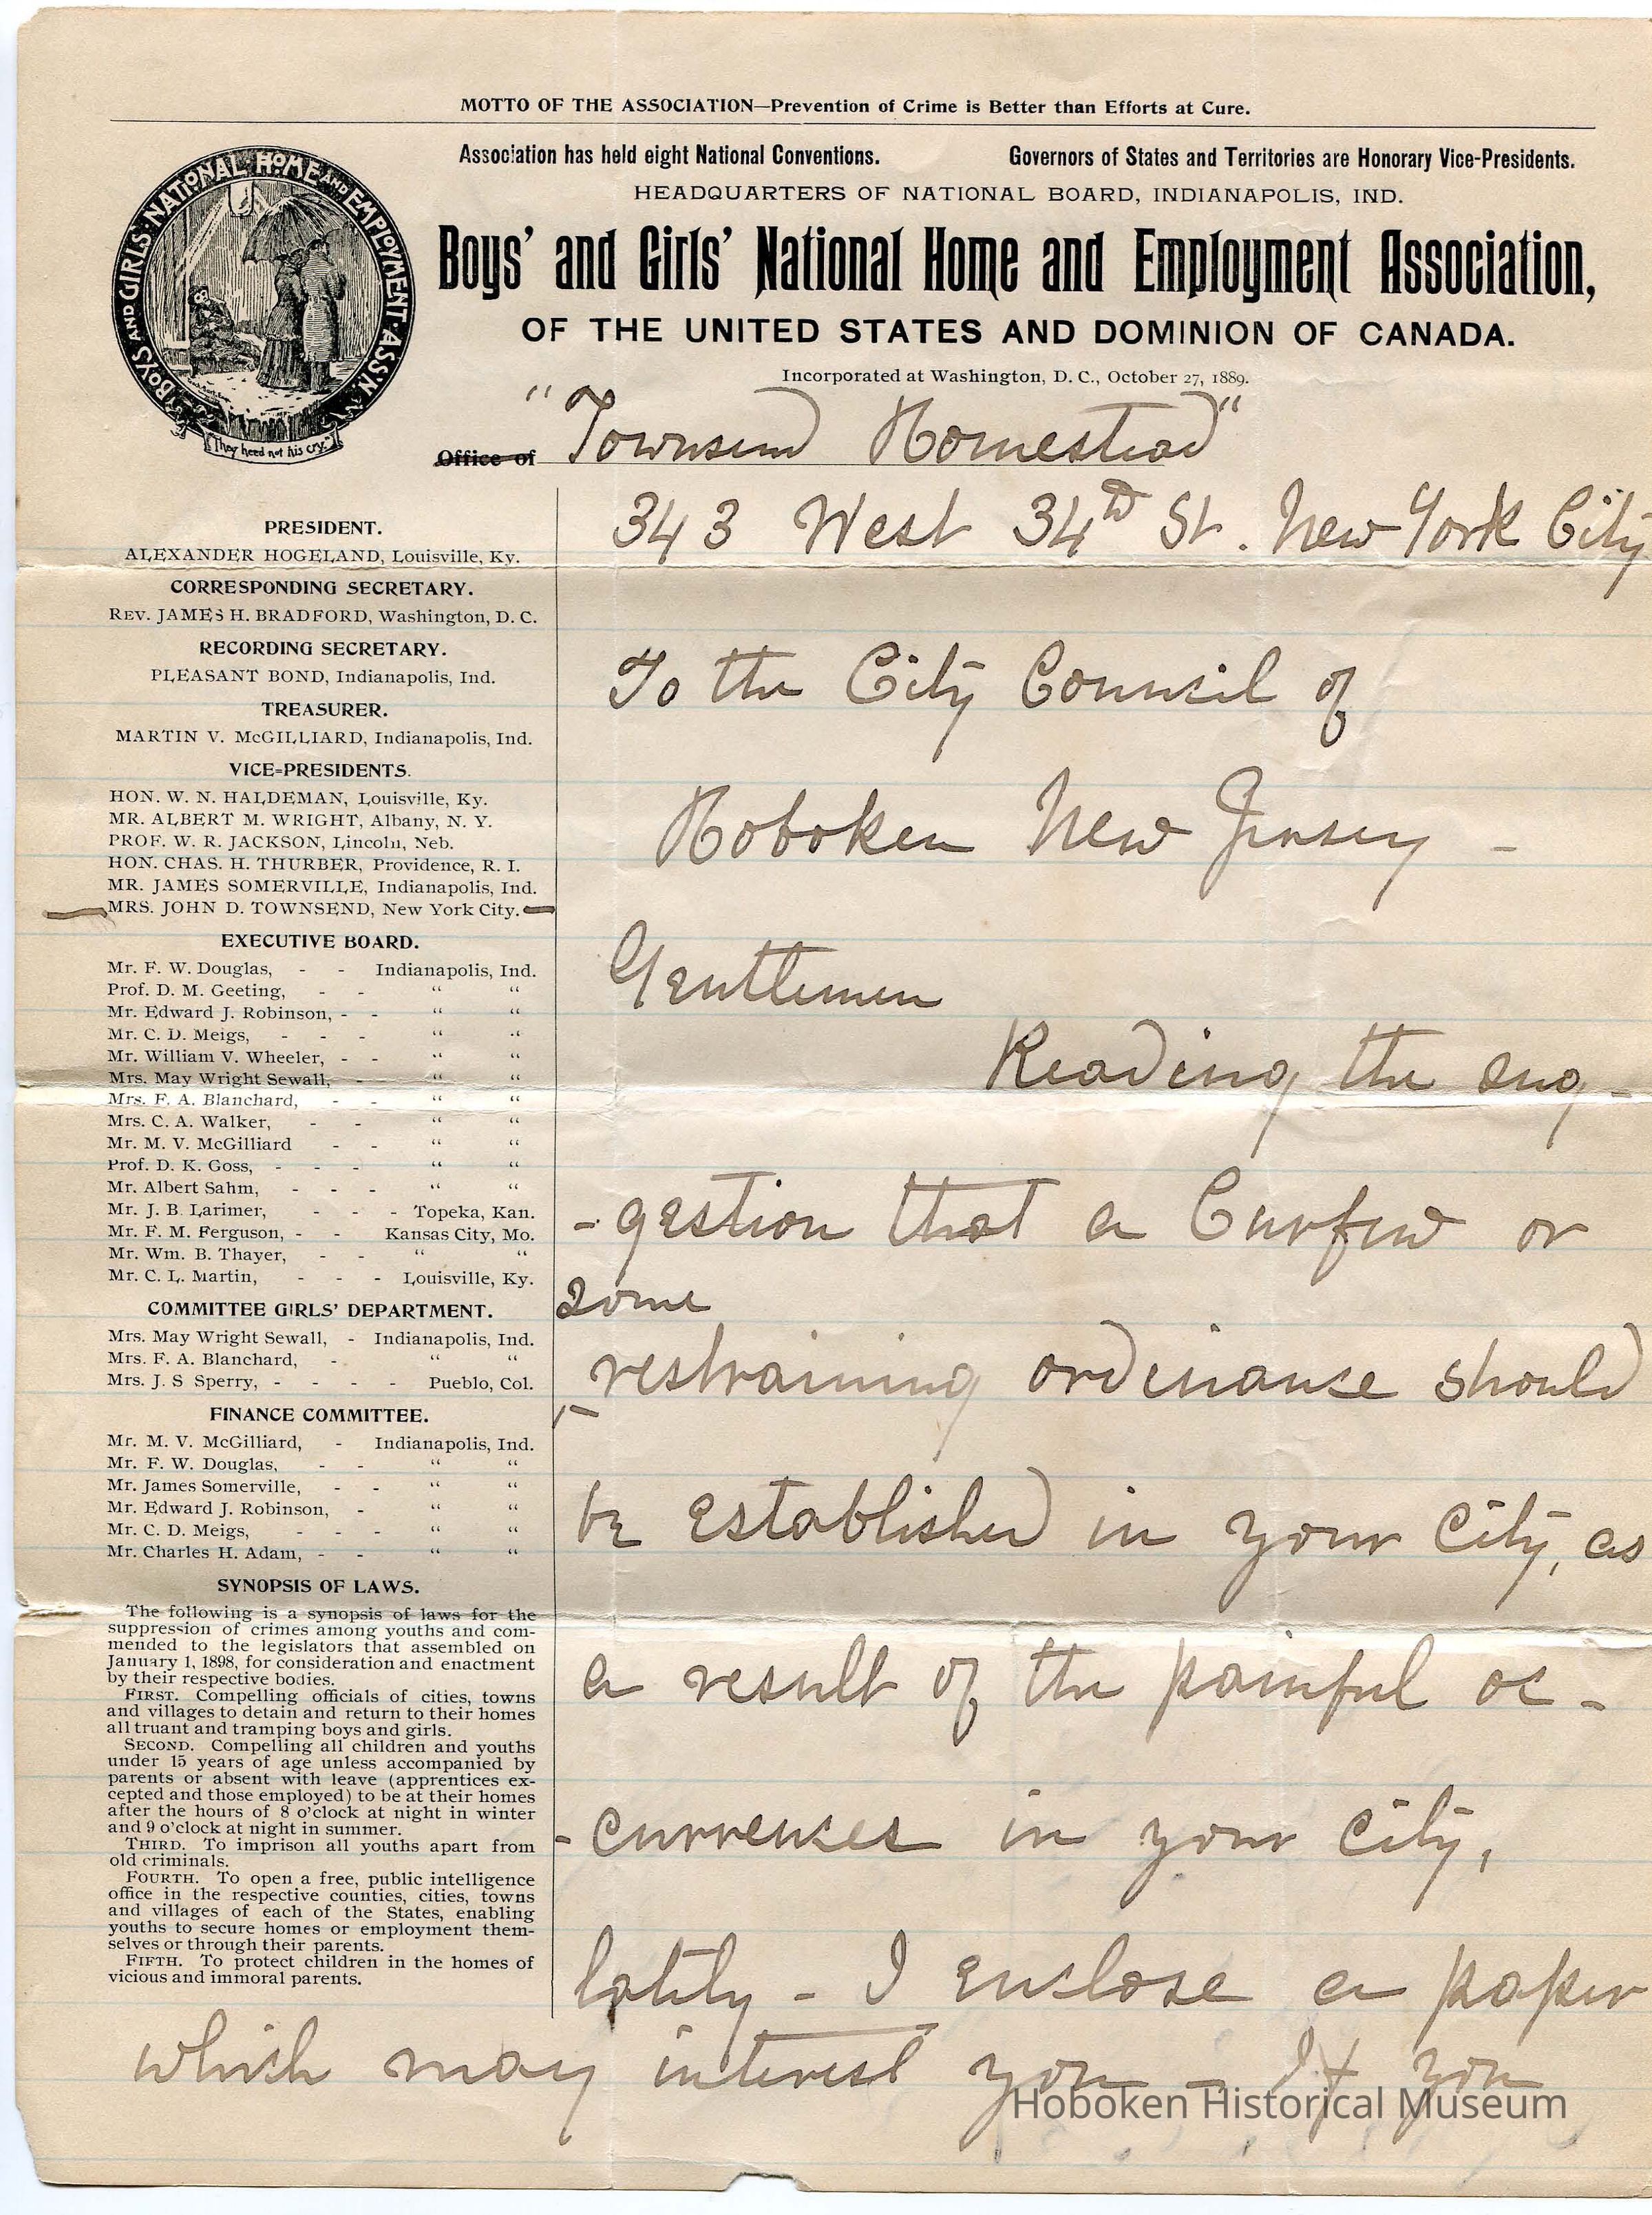 MOTTO OF THE ASSOCIATION—Prevention of Crime is Better than Efforts at Cure.
Association has held eight National Conventions. Governors of States and Territories are Honorary Vice-Presidents.
HEADQUARTERS OF NATIONAL BOARD, INDIANAPOLIS, IND.
BOYS AND GIRLS NATIONAL HOME AND EMPLOYMENT ASS'N.
"They heed not his cry."
Boys' and Girls' National Home and Employment Association,
OF THE UNITED STATES AND DOMINION OF CANADA.
Incorporated at Washington, D. C., October 27, 1889.
Office of "Townsend Homestead"
343 West 34th St. New York City
PRESIDENT.
ALEXANDER HOGELAND, Louisville, Ky.
CORRESPONDING SECRETARY.
REV. JAMES H. BRADFORD, Washington, D. C.
RECORDING SECRETARY.
PLEASANT BOND, Indianapolis, Ind.
TREASURER.
MARTIN V. McGILLIARD, Indianapolis, Ind.
VICE=PRESIDENTS.
HON. W. N. HALDEMAN, Louisville, Ky.
MR. ALBERT M. WRIGHT, Albany, N. Y.
PROF. W. R. JACKSON, Lincoln, Neb.
HON. CHAS. H. THURBER, Providence, R. I.
MR. JAMES SOMERVILLE, Indianapolis, Ind.
MRS. JOHN D. TOWNSEND, New York City.
EXECUTIVE BOARD.
Mr. F. W. Douglas, - - Indianapolis, Ind.
Prof. D. M. Geeting, - - " "
Mr. Edward J. Robinson, - - " "
Mr. C. D. Meigs, - - - " "
Mr. William V. Wheeler, - - " "
Mrs. May Wright Sewall, - " "
Mrs. F. A. Blanchard, - - " "
Mrs. C. A. Walker, - - " "
Mr. M. V. McGilliard - - " "
Prof. D. K. Goss, - - - " "
Mr. Albert Sahm, - - - " "
Mr. J. B. Larimer, - - - Topeka, Kan.
Mr. F. M. Ferguson, - - Kansas City, Mo.
Mr. Wm. B. Thayer, - - " "
Mr. C. L. Martin, - - - Louisville, Ky.
COMMITTEE GIRLS' DEPARTMENT.
Mrs. May Wright Sewall, - Indianapolis, Ind.
Mrs. F. A. Blanchard, - " "
Mrs. J. S Sperry, - - - - Pueblo, Col.
FINANCE COMMITTEE.
Mr. M. V. McGilliard, - Indianapolis, Ind.
Mr. F. W. Douglas, - - " "
Mr. James Somerville, - - " "
Mr. Edward J. Robinson, - " "
Mr. C. D. Meigs, - - - " "
Mr. Charles H. Adam, - - " "
SYNOPSIS OF LAWS.
The following is a synopsis of laws for the
suppression of crimes among youths and com-
mended to the legislators that assembled on
January 1, 1898, for consideration and enactment
by their respective bodies.
FIRST. Compelling officials of cities, towns
and villages to detain and return to their homes
all truant and tramping boys and girls.
SECOND. Compelling all children and youths
under 15 years of age unless accompanied by
parents or absent with leave (apprentices ex-
cepted and those employed) to be at their homes
after the hours of 8 o'clock at night in winter
and 9 o'clock at night in summer.
THIRD. To imprison all youths apart from
old criminals.
FOURTH. To open a free, public intelligence
office in the respective counties, cities, towns
and villages of each of the States, enabling
youths to secure homes or employment them-
selves or through their parents.
FIFTH. To protect children in the homes of
vicious and immoral parents.
To the City Council of
Hoboken New Jersey -
Gentlemen
Reading the sug-
-gestion that a Curfew or
some
restraining ordinance should
be established in your City, as
a result of the painful oc-
-currences in your City,
lately - I enclose a paper
which may interest you - If you
Hoboken Historical Museum